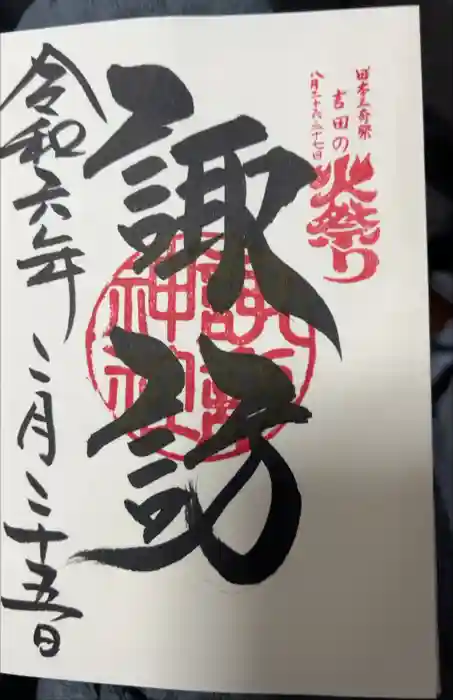 日本三奇祭
吉田の
火祭り
八月二十六、二十七日
諏訪
諏訪神社
令和六年二月二十五日